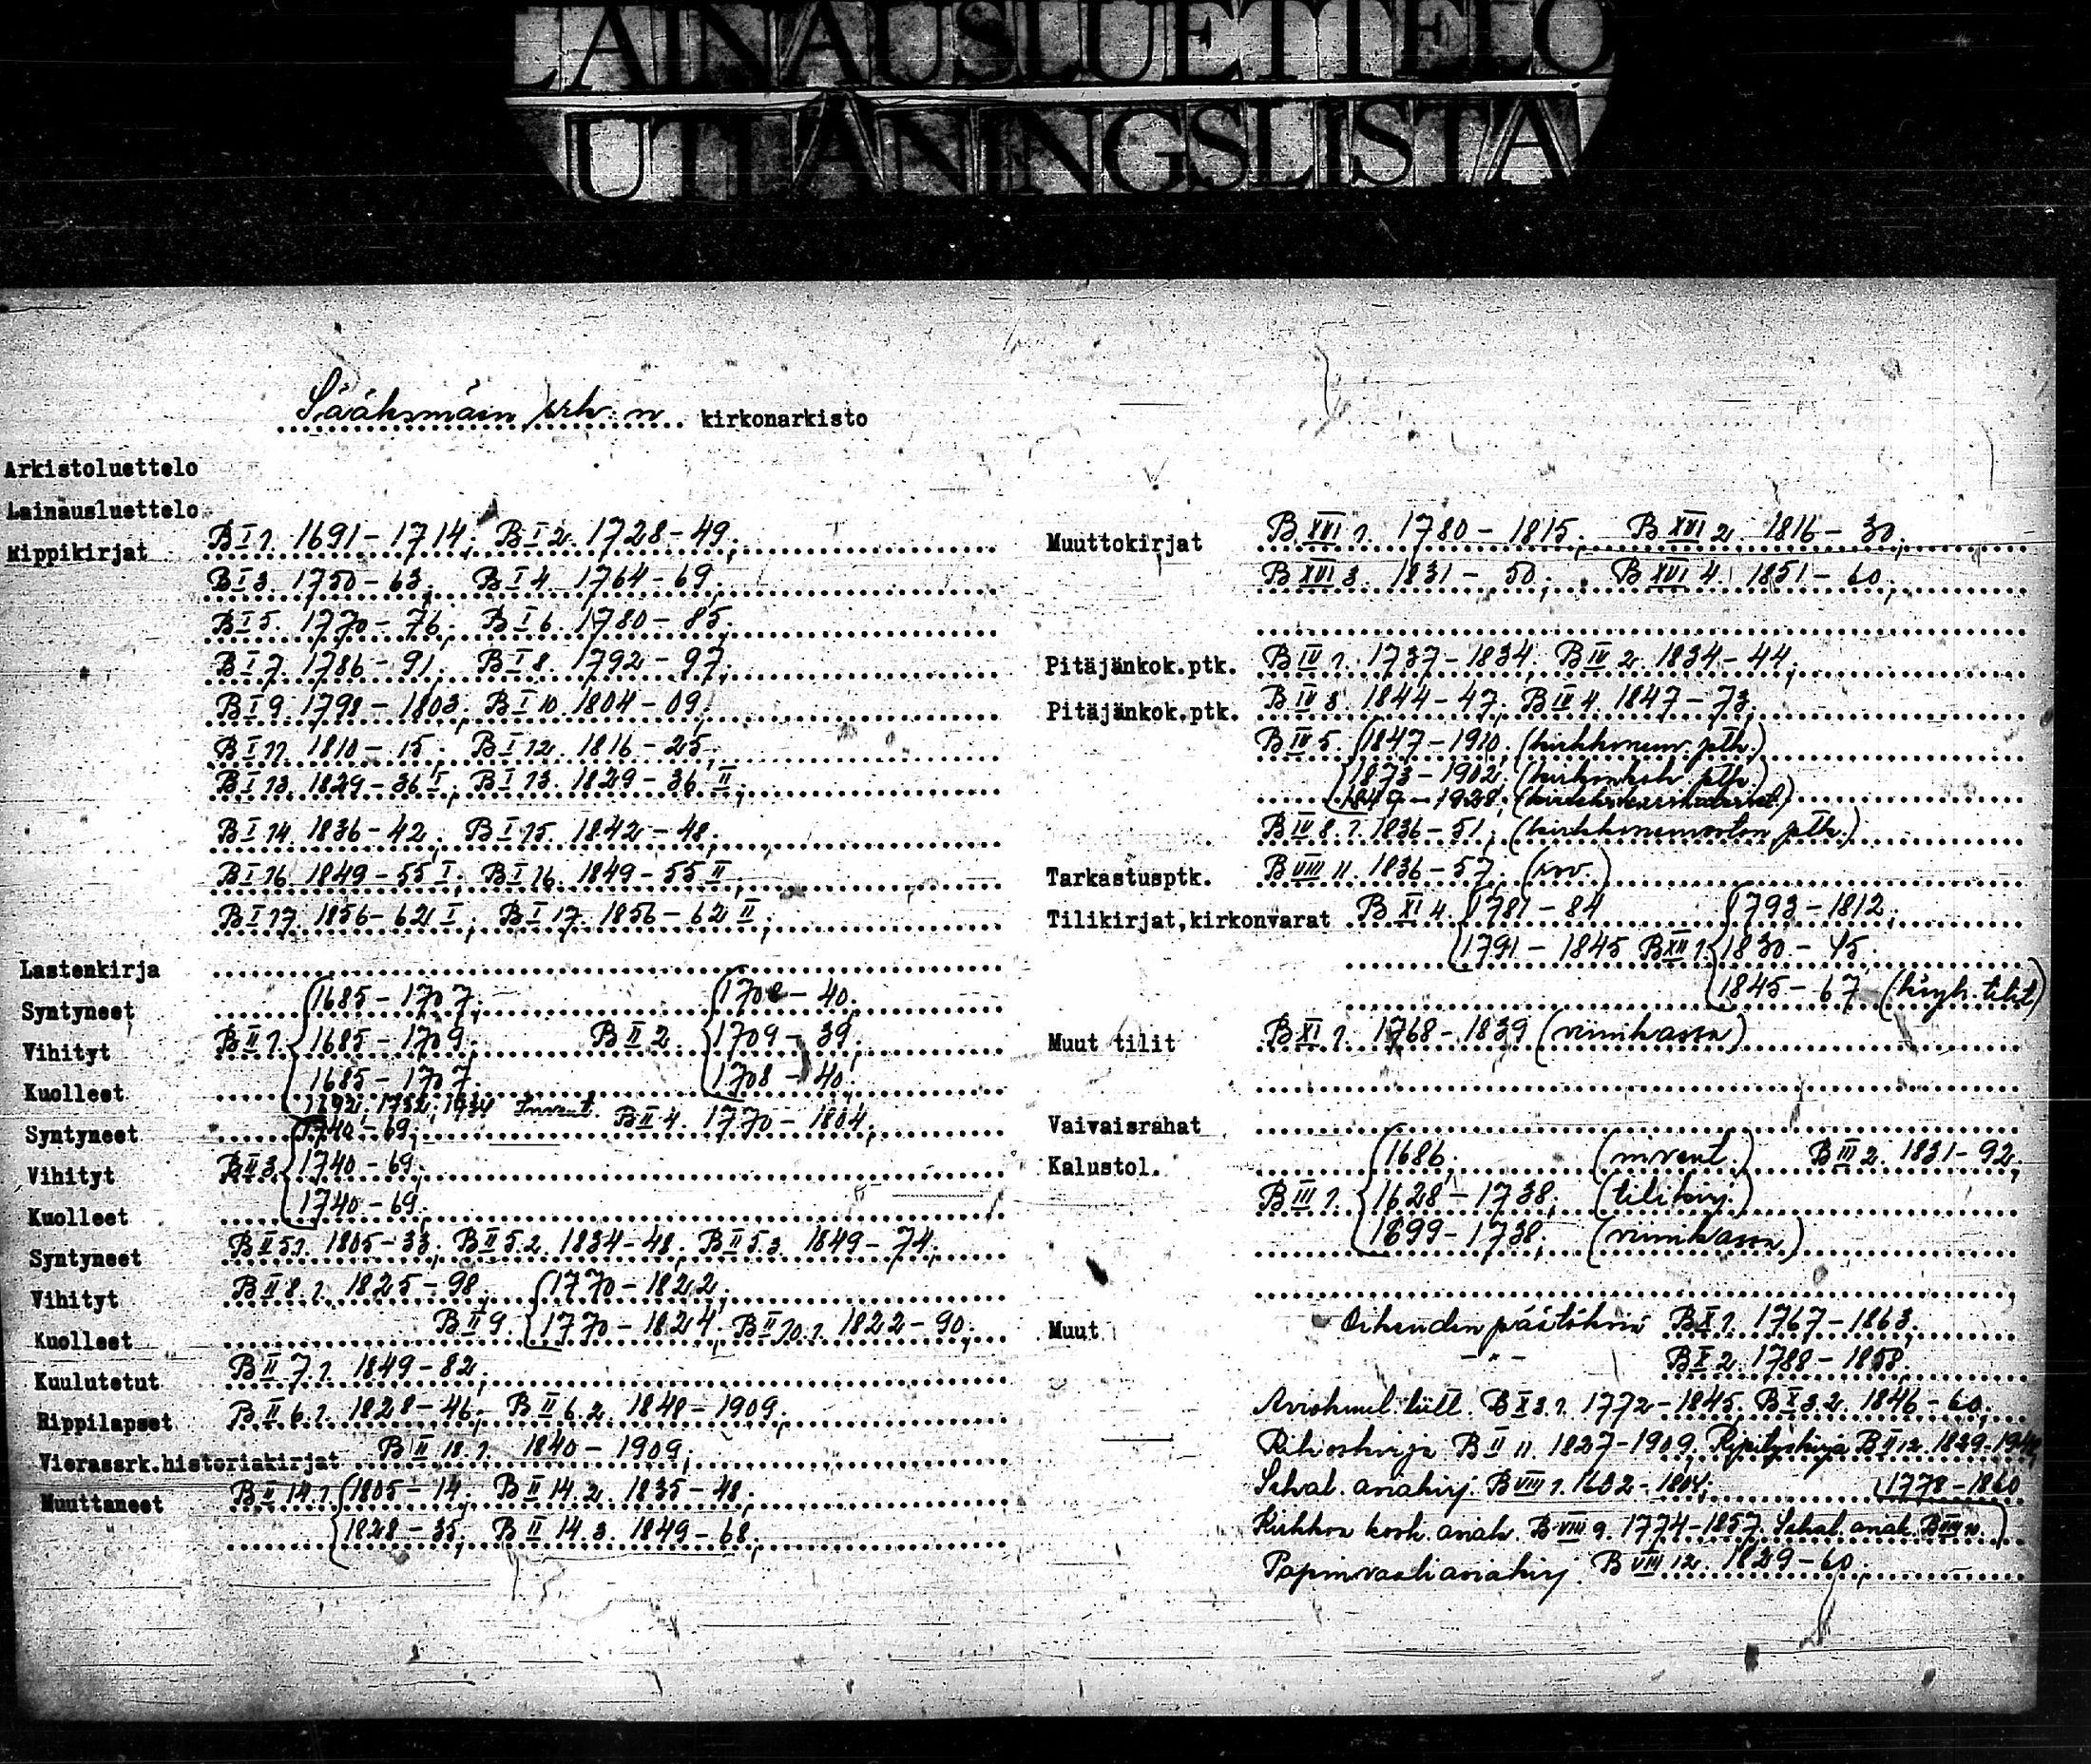 LAINAUSLUETTELO
UTLÅNINGSLISTA
Sääksmäen srk:n kirkonarkisto
Arkistoluettelo
Lainausluettelo
Rippikirjat B I 1. 1691-1714; B I 2. 1728-49;
B I 3. 1750-63; B I 4. 1764-69;
B I 5. 1770-76; B I 6. 1780-85;
B I 7. 1786-91; B I 8. 1792-97;
B I 9. 1798-1803; B I 10. 1804-09;
B I 11. 1810-15; B I 12. 1816-25;
B I 13. 1829-36 I; B I 13. 1829-36 II;
B I 14. 1836-42; B I 15. 1842-48;
B I 16. 1849-55 I; B I 16. 1849-55 II;
B I 17. 1856-62 I; B I 17. 1856-62 II;
Lastenkirja
Syntyneet 1685-1707; 1708-40;
Vihityt B II 1. 1685-1709; B II 2. 1709-39;
Kuolleet 1685-1707; 1708-40;
1692; 1752; 1734 Invent.
Syntyneet 1740-69; B II 4. 1770-1804;
Vihityt B II 3. 1740-69;
Kuolleet 1740-69;
Syntyneet B II 5.1. 1805-33; B II 5.2. 1834-48; B II 5.3. 1849-74;
Vihityt B II 8.1. 1825-98; 1770-1822;
Kuolleet B II 9. 1770-1824; B II 10.1. 1822-90;
Kuulutetut B II 7.1. 1849-82;
Rippilapset B II 6.1. 1828-46; B II 6.2. 1848-1909;
Vierassrk.historiakirjat B II 18.1. 1840-1909;
Muuttaneet B II 14.1. 1805-14; B II 14.2. 1835-48;
1828-35; B II 14.3. 1849-68;
Muuttokirjat B XVI 1. 1780-1815; B XVI 2. 1816-30;
B XVI 3. 1831-50; B XVI 4. 1851-60;
Pitäjänkok.ptk. B IV 1. 1737-1834; B IV 2. 1834-44;
Pitäjänkok.ptk. B IV 3. 1844-47; B IV 4. 1847-73;
B IV 5. 1847-1910; (kirkkoneuv. ptk.)
1873-1902; (kirkonkok. ptk.)
1847-1928;
B IV 8.1. 1836-51; (kirkkoneuvoston ptk.)
Tarkastusptk. B VIII 11. 1836-57;
Tilikirjat,kirkonvarat B XI 4. 1781-84 1793-1812;
1791-1845 B XII 1. 1830-45;
1845-67 (kirjk. tilit)
Muut tilit B XI 1. 1768-1839 (viinikassa)
Vaivaisrahat
Kalustol. 1686; (invent.) B III 2. 1831-92;
B III 1. 1628-1738; (tilikirj.)
1699-1738; (viinikassa)
Muut Oikeuden päätöksiä B X 1. 1767-1863;
-"- B X 2. 1788-1858;
Aviokuul. luett. B X 3.1. 1772-1845; B X 3.2. 1846-60;
Rikoskirja B II 11. 1827-1909; Ripityskirja B II 12. 1829-1942;
Sekal. asiakirj. B VIII 1. 1602-1804; 1778-1860
Kirkkoa kosk. asiak. B VIII 9. 1774-1857; Sekal. asiak. B VIII
Papinvaaliasiakirj. B VIII 12. 1829-60;